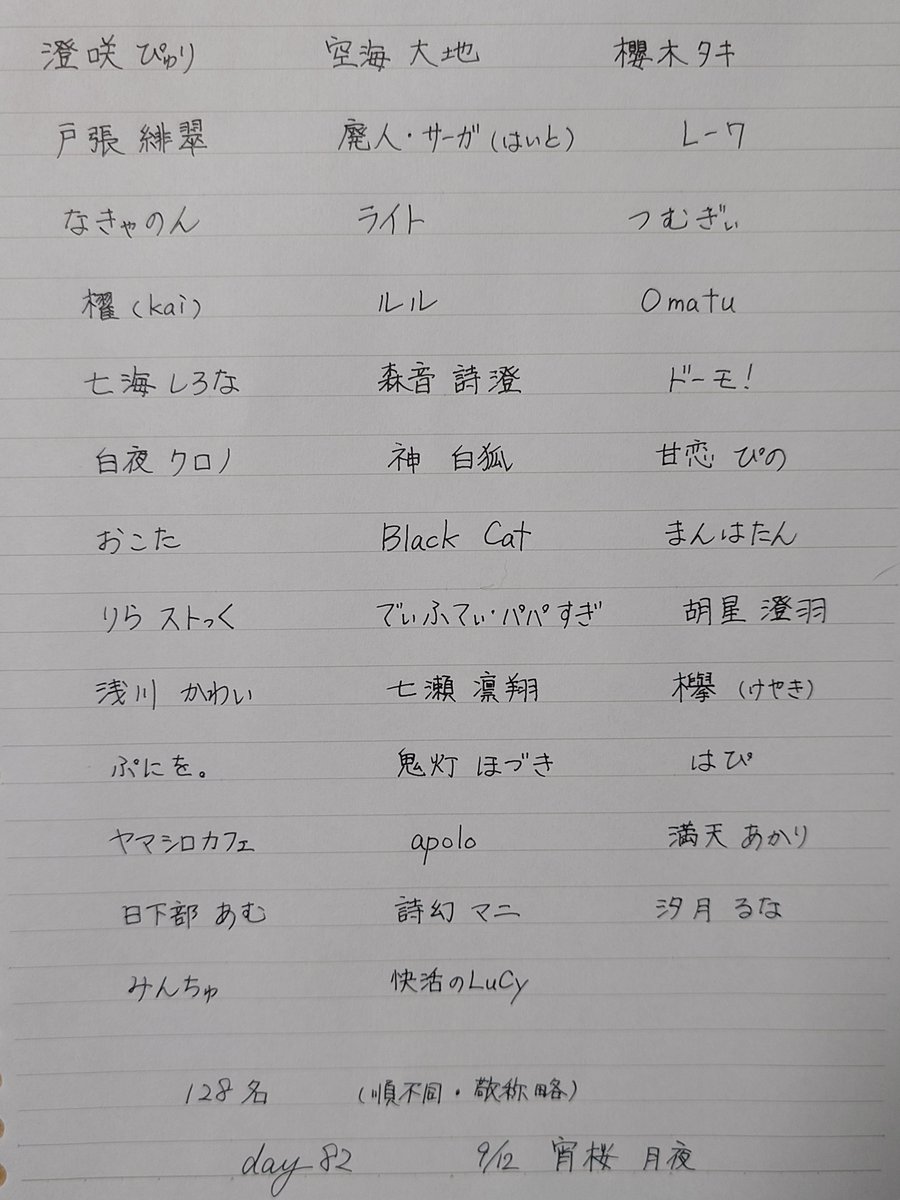 澄咲 ぴゅり 空海 大地 櫻木タキ
戸張 緋翠 廃人・サーガ(はいと) レーワ
なきゃのん ライト つむぎぃ
櫂(kai) ルル Omatu
七海しろな 森音 詩澄 ドーモ!
白夜 クロノ 神 白狐 甘恋 ぴの
おこた Black Cat まんはたん
りら ストっく でぃふてぃ・パパすぎ 胡星 澄羽
浅川 かわい 七瀬 凛翔 欅(けやき)
ぷにを。 鬼灯 ほづき はぴ
ヤマシロカフェ apolo 満天 あかり
日下部 あむ 詩幻 マニ 汐月 るな
みんちゅ 快活のLuCy
128名 (順不同・敬称略)
day 82 9/12 宵桜 月夜